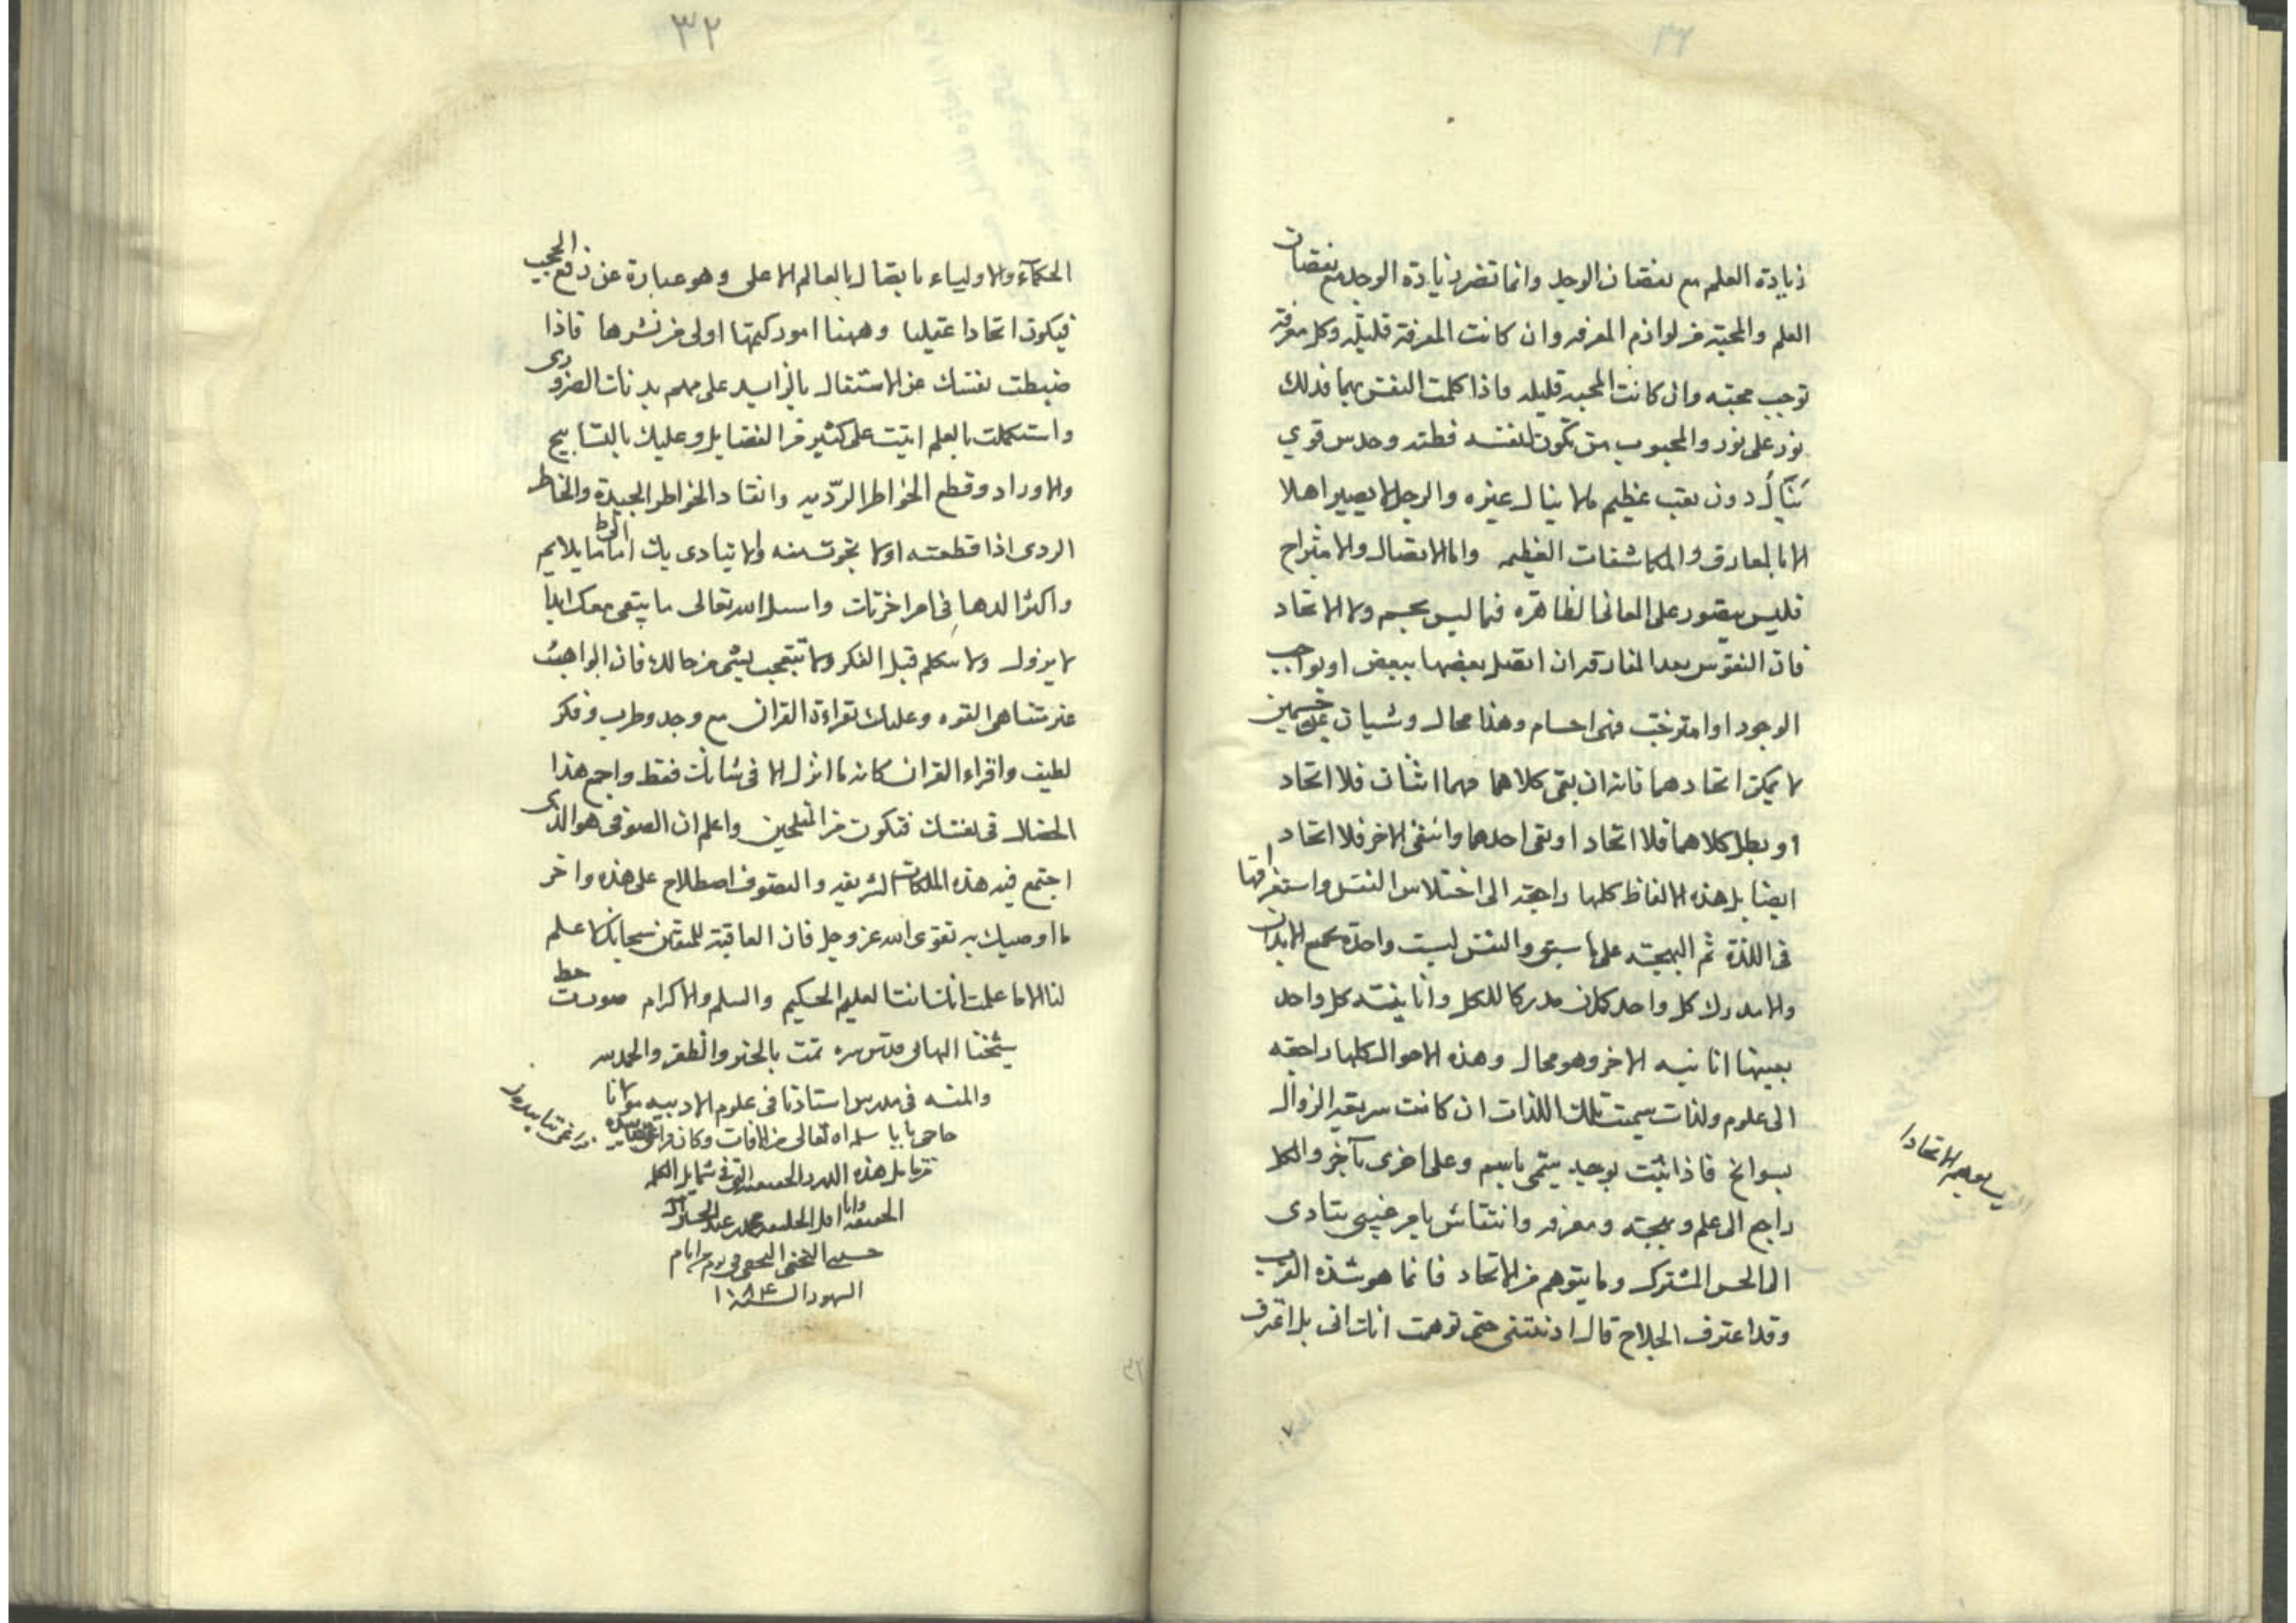 زيادة العلم مع نقصان الوجد وانما تضر زيادة الوجد مع نقصان
العلم والمحبة من لوازم المعرفه وان كانت المعرفة قليلة وكل معرفة
توجب محبته وان كانت المحبه قليله فاذا كملت النفس بهما فذلك
نور على نور والمحبوب من تكون لنفسه فطنه وحدس قوي
ينال دون تعب عظيم ما لا ينال غيره والرجل لا يصير اهلا
الا بالمعارف والمكاشفات العظيمه واما الاتصال والامتزاج
فليس يتصور على المعانى الظاهره فيما ليس بجسم ولا الاتحاد
فان النفوس بعد المفارقه ان اتصل بعضها ببعض او بواجب
الوجود او امتزجت فهى اجسام وهذا محال وشيان غير جسمين
لا يمكن اتحادهما فانه ان بقى كلاهما فهما اثنان فلا اتحاد
او بطل كلاهما فلا اتحاد او بقى احدهما وانتفى الاخر فلا اتحاد
ايضا بل هذه الالفاظ كلها راجعه الى اختلاس النفس واستغراقها
فى اللذة ثم البهجه على ما سبق والنفس ليست واحدة لجميع الابدان
والا مدرك كل واحد كان مدركا للكل وانانيته كل واحد
بعينها انانيه الاخر وهو محال وهذه الاحوال كلها راجعه
الى علوم ولذات سميت تلك اللذات ان كانت سريعه الزوال
بسوانح فاذا ثبت بوجد يسمى باسم وعلى اخرى بآخر والكل
راجع الى علم وبهجه ومعرفه وانتقاش بامر غيبى يتادى
الى الحس المشترك وما يتوهم من الاتحاد فانما هو شدة القرب
وقد اعترف الحلاج قال ادنيتنى حتى توهمت انك انى بل اعترف
٣٢
الحكماء والاولياء باتصال بالعالم الاعلى وهو عبارة عن رفع الحجب
فيكون اتحادا عقليا وههنا امور كتمها اولى من نشرها فاذا
ضبطت نفسك عن الاشتغال بالزايد على مهم بدنك الضرورى
واستكملت بالعلم اتيت على كثير من الفضايل وعليك بالتسابيح
والاوراد وقطع الخواطر الرديه وانقاد الخواطر الجيدة والخاطر
الردى اذا قطعته اولا نجوت منه والا يتادى بك الى ما لا يلايم
واكثر الدعا فى امر اخرتك واسال الله تعالى ما يبقى معك ابدا
لا يزول ولا تتكلم قبل الفكر ولا تتعجب بشئ من حالك فان الواهب
غير متناهى القوه وعليك بقراءة القران مع وجد وطرب وفكر
لطيف واقراء القران كانه ما انزل الا فى شانك فقط واجمع هذا
الخصال فى نفسك فتكون من المفلحين واعلم ان الصوفى هو الذى
اجتمع فيه هذه الملكات الشريفه والتصوف اصطلاح على هذه واخر
ما اوصيك به تقوى الله عز وجل فان العاقبة للمتقين سبحانك لا علم
لنا الا ما علمت انك انت العليم الحكيم والسلم والاكرام صورت خط
شيخنا البهائى قدس سره تمت بالخير والظفر والحمد لله
والمنه فى مدرس استادنا فى علوم الادبيه مولانا
حاجى بابا سلمه الله تعالى من الافات وكان
هذه
الحقيقه وانا اقل الخليقه محمد
حسين النجفى
السنه ١٠٨٤